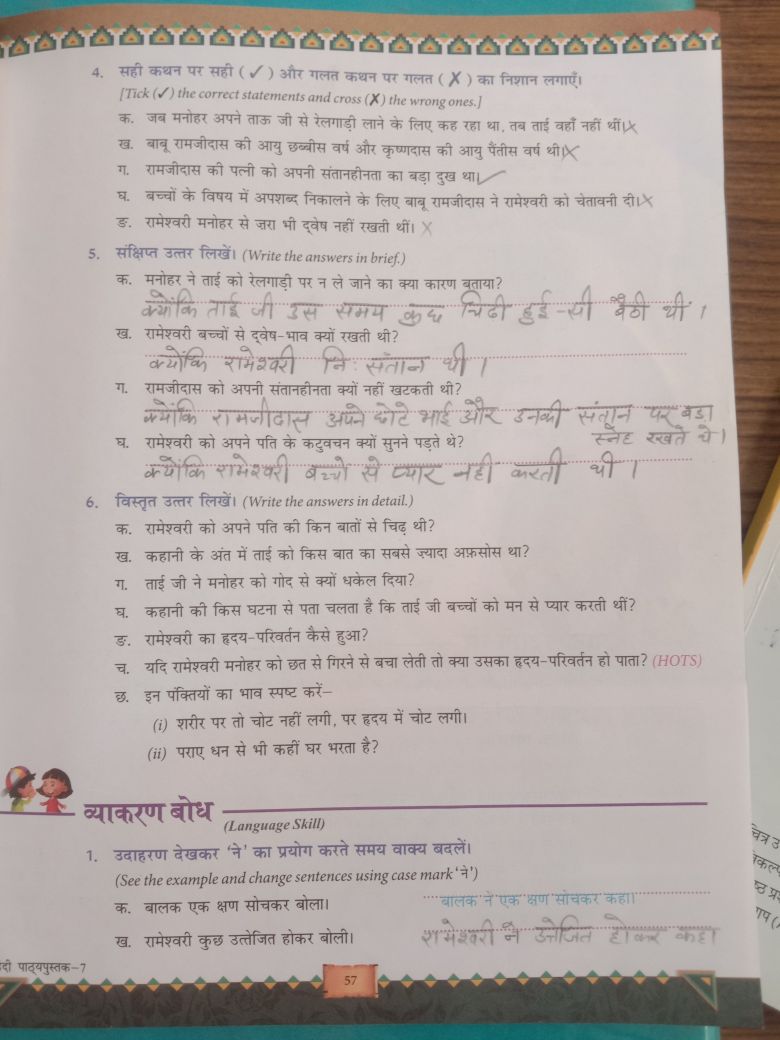 4. सही कथन पर सही (✓) और गलत कथन पर गलत (✗) का निशान लगाएँ।
[Tick (✓) the correct statements and cross (✗) the wrong ones.]
क. जब मनोहर अपने ताऊ जी से रेलगाड़ी लाने के लिए कह रहा था, तब ताई वहाँ नहीं थीं। ✗
ख. बाबू रामजीदास की आयु छब्बीस वर्ष और कृष्णदास की आयु पैंतीस वर्ष थी। ✗
ग. रामजीदास की पत्नी को अपनी संतानहीनता का बड़ा दुख था। ✓
घ. बच्चों के विषय में अपशब्द निकालने के लिए बाबू रामजीदास ने रामेश्वरी को चेतावनी दी। ✗
ङ. रामेश्वरी मनोहर से ज़रा भी द्वेष नहीं रखती थीं। ✗
5. संक्षिप्त उत्तर लिखें। (Write the answers in brief.)
क. मनोहर ने ताई को रेलगाड़ी पर न ले जाने का क्या कारण बताया?
क्योंकि ताई जी उस समय कुछ चिढी हुई-सी बैठी थीं ।
ख. रामेश्वरी बच्चों से द्वेष-भाव क्यों रखती थी?
क्योंकि रामेश्वरी नि: संतान थी ।
ग. रामजीदास को अपनी संतानहीनता क्यों नहीं खटकती थी?
क्योंकि रामजीदास अपने छोटे भाई और उनकी संतान पर बड़ा
स्नेह रखते थे।
घ. रामेश्वरी को अपने पति के कटुवचन क्यों सुनने पड़ते थे?
क्योंकि रामेश्वरी बच्चो से प्यार नही करती थी ।
6. विस्तृत उत्तर लिखें। (Write the answers in detail.)
क. रामेश्वरी को अपने पति की किन बातों से चिढ़ थी?
ख. कहानी के अंत में ताई को किस बात का सबसे ज़्यादा अफ़सोस था?
ग. ताई जी ने मनोहर को गोद से क्यों धकेल दिया?
घ. कहानी की किस घटना से पता चलता है कि ताई जी बच्चों को मन से प्यार करती थीं?
ङ. रामेश्वरी का हृदय-परिवर्तन कैसे हुआ?
च. यदि रामेश्वरी मनोहर को छत से गिरने से बचा लेती तो क्या उसका हृदय-परिवर्तन हो पाता? (HOTS)
छ. इन पंक्तियों का भाव स्पष्ट करें–
(i) शरीर पर तो चोट नहीं लगी, पर हृदय में चोट लगी।
(ii) पराए धन से भी कहीं घर भरता है?
व्याकरण बोध
(Language Skill)
1. उदाहरण देखकर 'ने' का प्रयोग करते समय वाक्य बदलें।
(See the example and change sentences using case mark 'ने')
क. बालक एक क्षण सोचकर बोला। बालक ने एक क्षण सोचकर कहा।
ख. रामेश्वरी कुछ उत्तेजित होकर बोली। रामेश्वरी ने उत्तेजित होकर कहा
पाठ्यपुस्तक–7
57